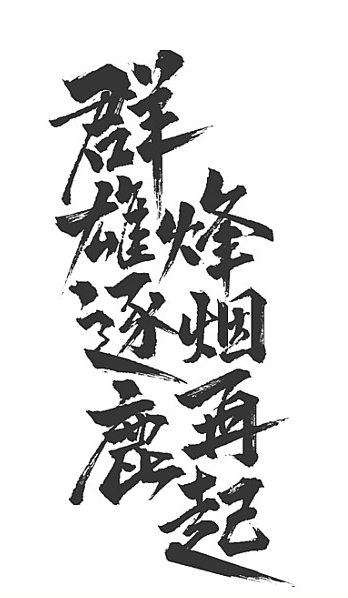 群雄逐鹿
烽烟再起